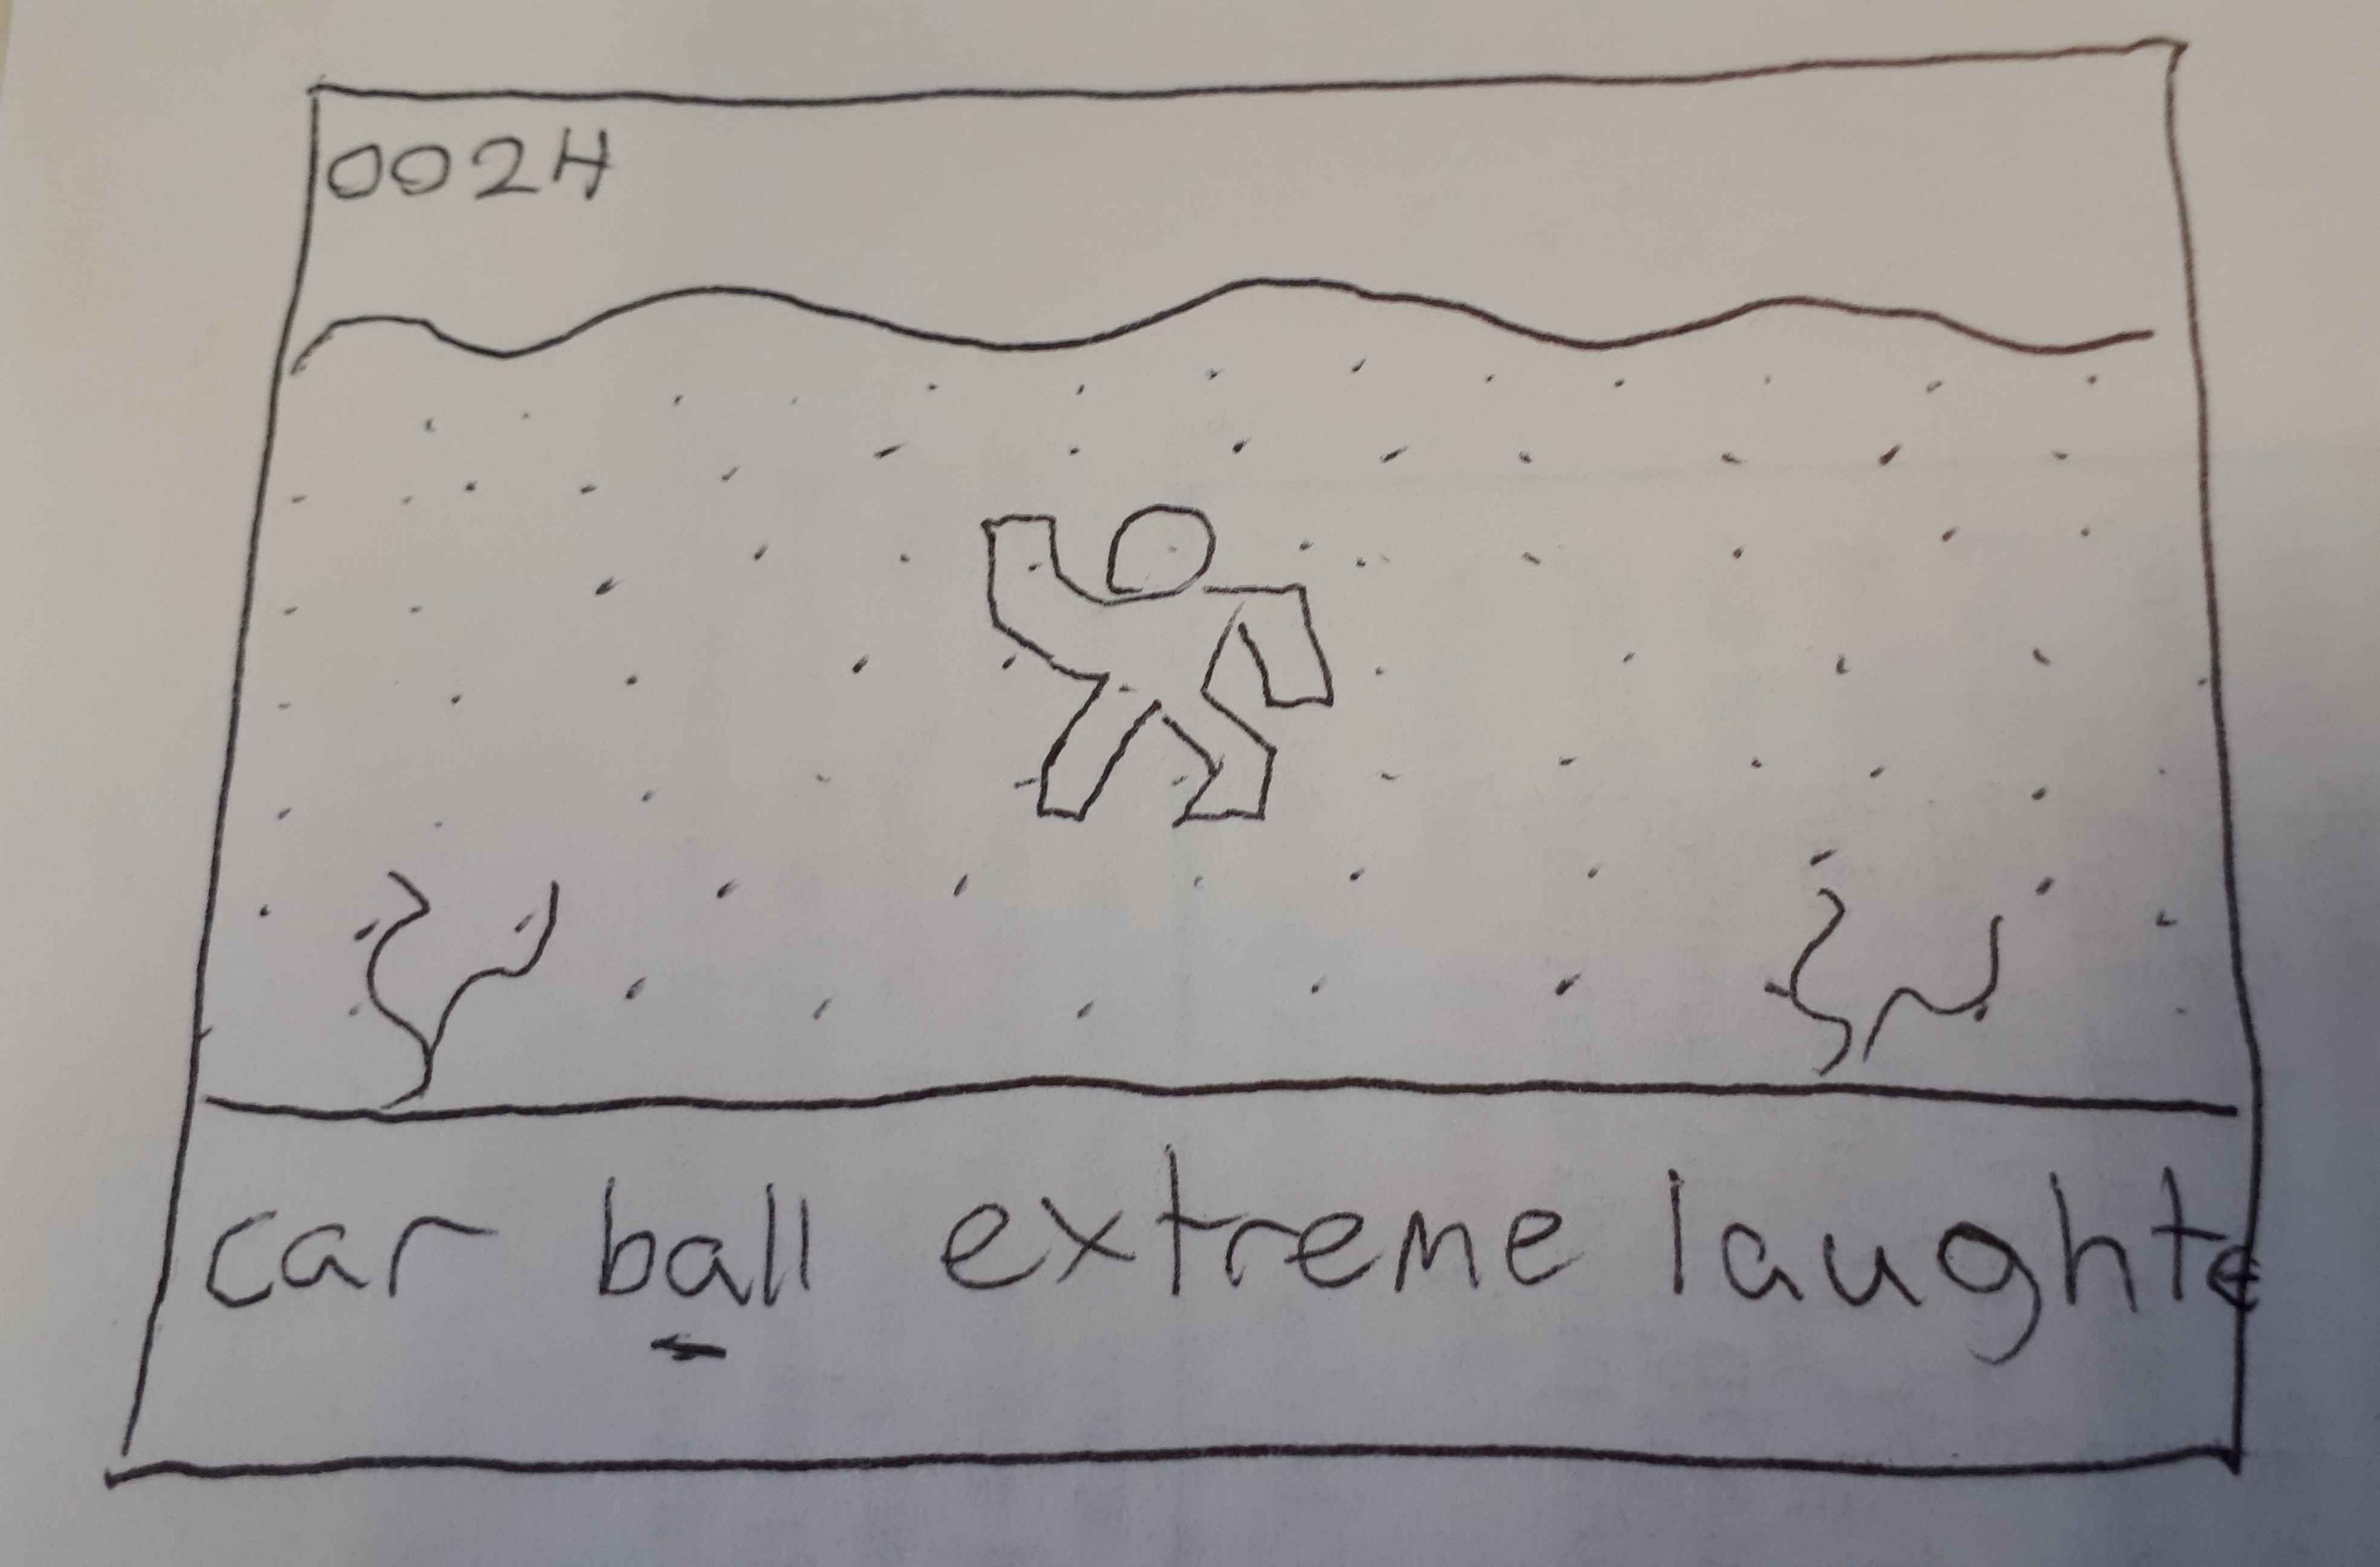 002H
car ball extreme laughte